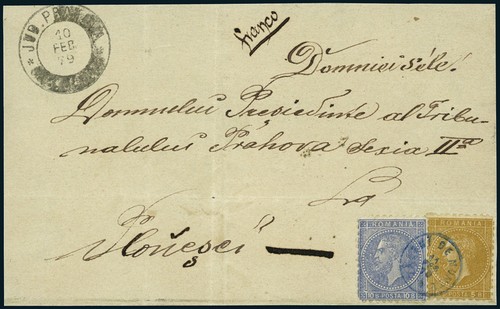 JUD. PRAHOVA
10
FEB
79
franco
Domniei séle!
Domnului Președinte al Tribu-
nalului Prahova Secția IIa
La
Ploueșci
ROMANIA
ROMANIA